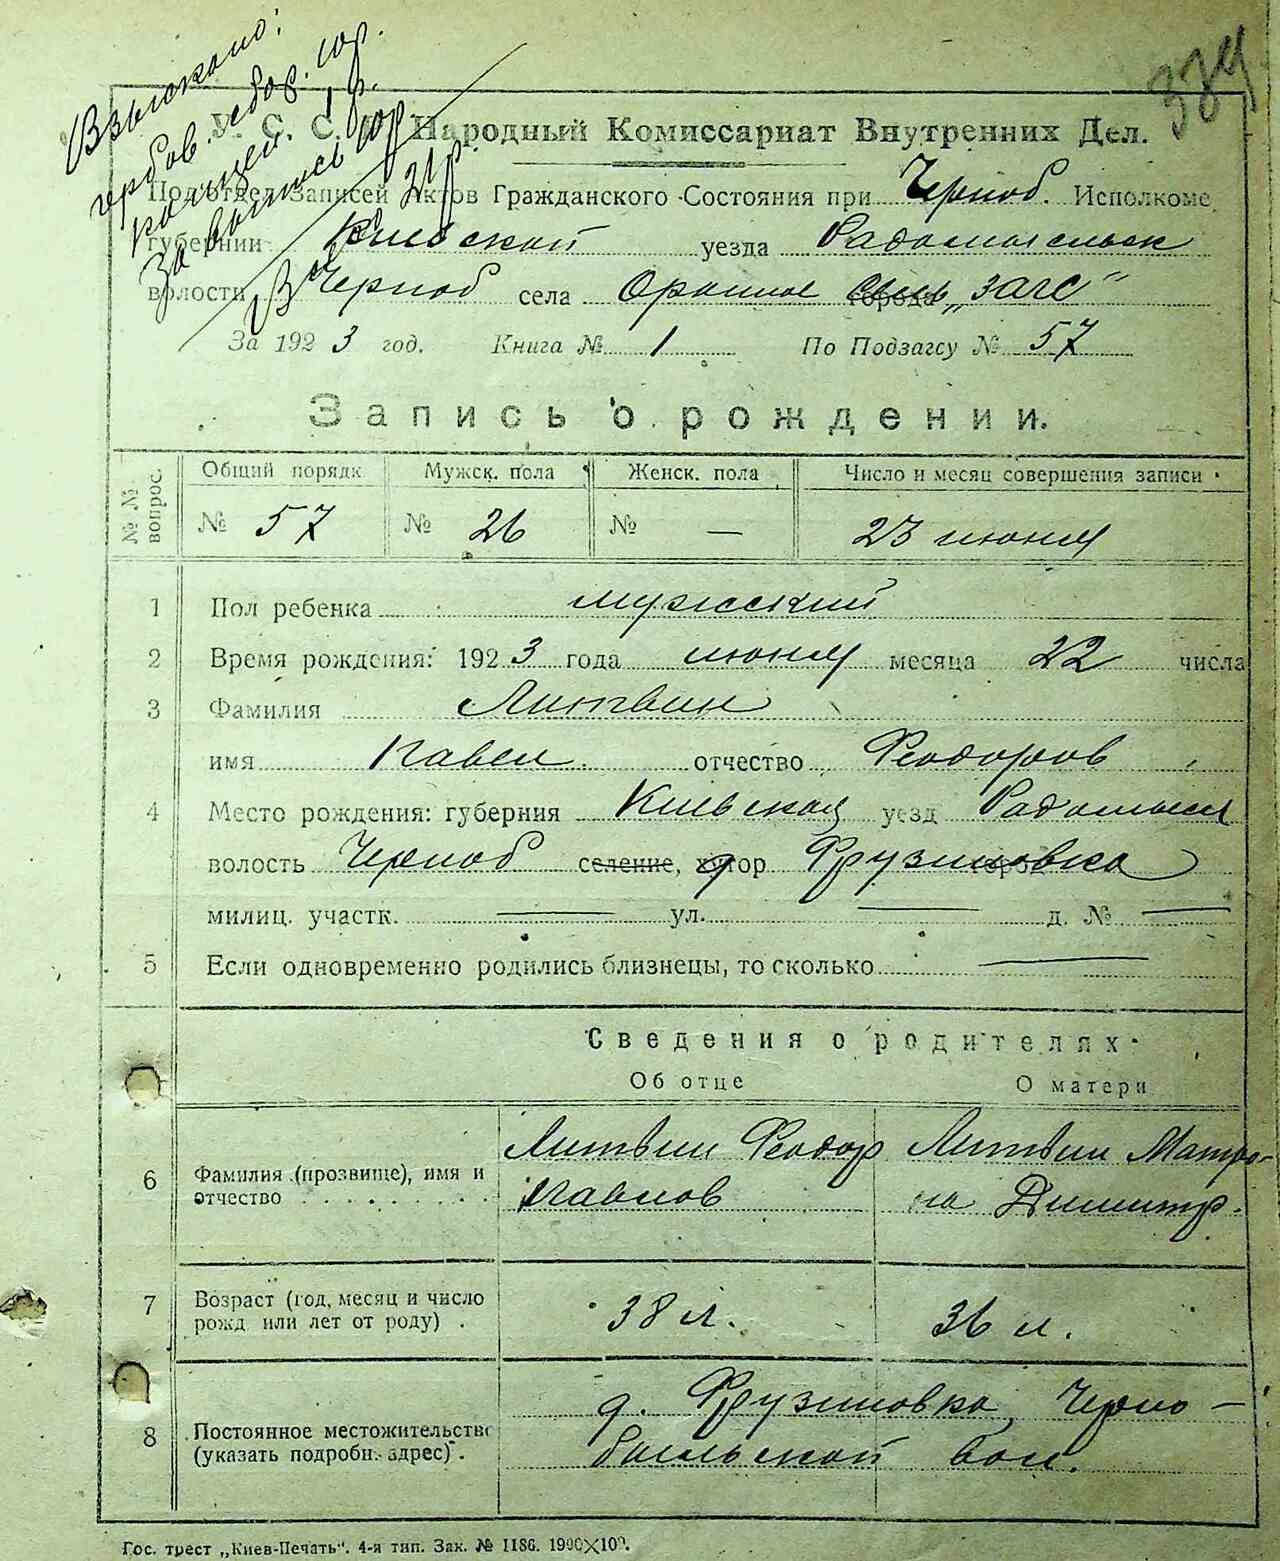 334
Взыскано:
гербов. сбор. 10р.
канцел. 1 р.
За запись 10р
21р.
У. С. С. Народный Комиссариат Внутренних Дел.
Подотдел Записей Актов Гражданского Состояния при Черноб. Исполкоме
губернии Киевской уезда Радомысльск
волости Черноб села Оранное "загс"
За 1923 год. Книга № 1 По Подзагсу № 57
Запись о рождении.
№№ вопрос. Общий порядк Мужск. пола Женск. пола Число и месяц совершения записи
№ 57 № 26 № — 23 июня
1 Пол ребенка мужский
2 Время рождения: 1923 года июня месяца 22 числа
3 Фамилия Литвин
имя Павел. отчество Феодоров
4 Место рождения: губерния Киевская уезд Радомысл
волость Черноб селение, хутор Фрузиновка
милиц. участк. — ул. — д. № —
5 Если одновременно родились близнецы, то сколько —
Сведения о родителях
Об отце О матери
Литвин Феодор Литвин Матро-
6 Фамилия (прозвище), имя и
отчество Павлов на Димитр.
7 Возраст (год, месяц и число
рожд или лет от роду) . 38 л. 36 л.
д. Фрузиновка, Черно-
8 Постоянное местожительство
(указать подробн. адрес). быльской вол.
Гос. трест „Киев-Печать". 4-я тип. Зак. № 1186. 1990×100.